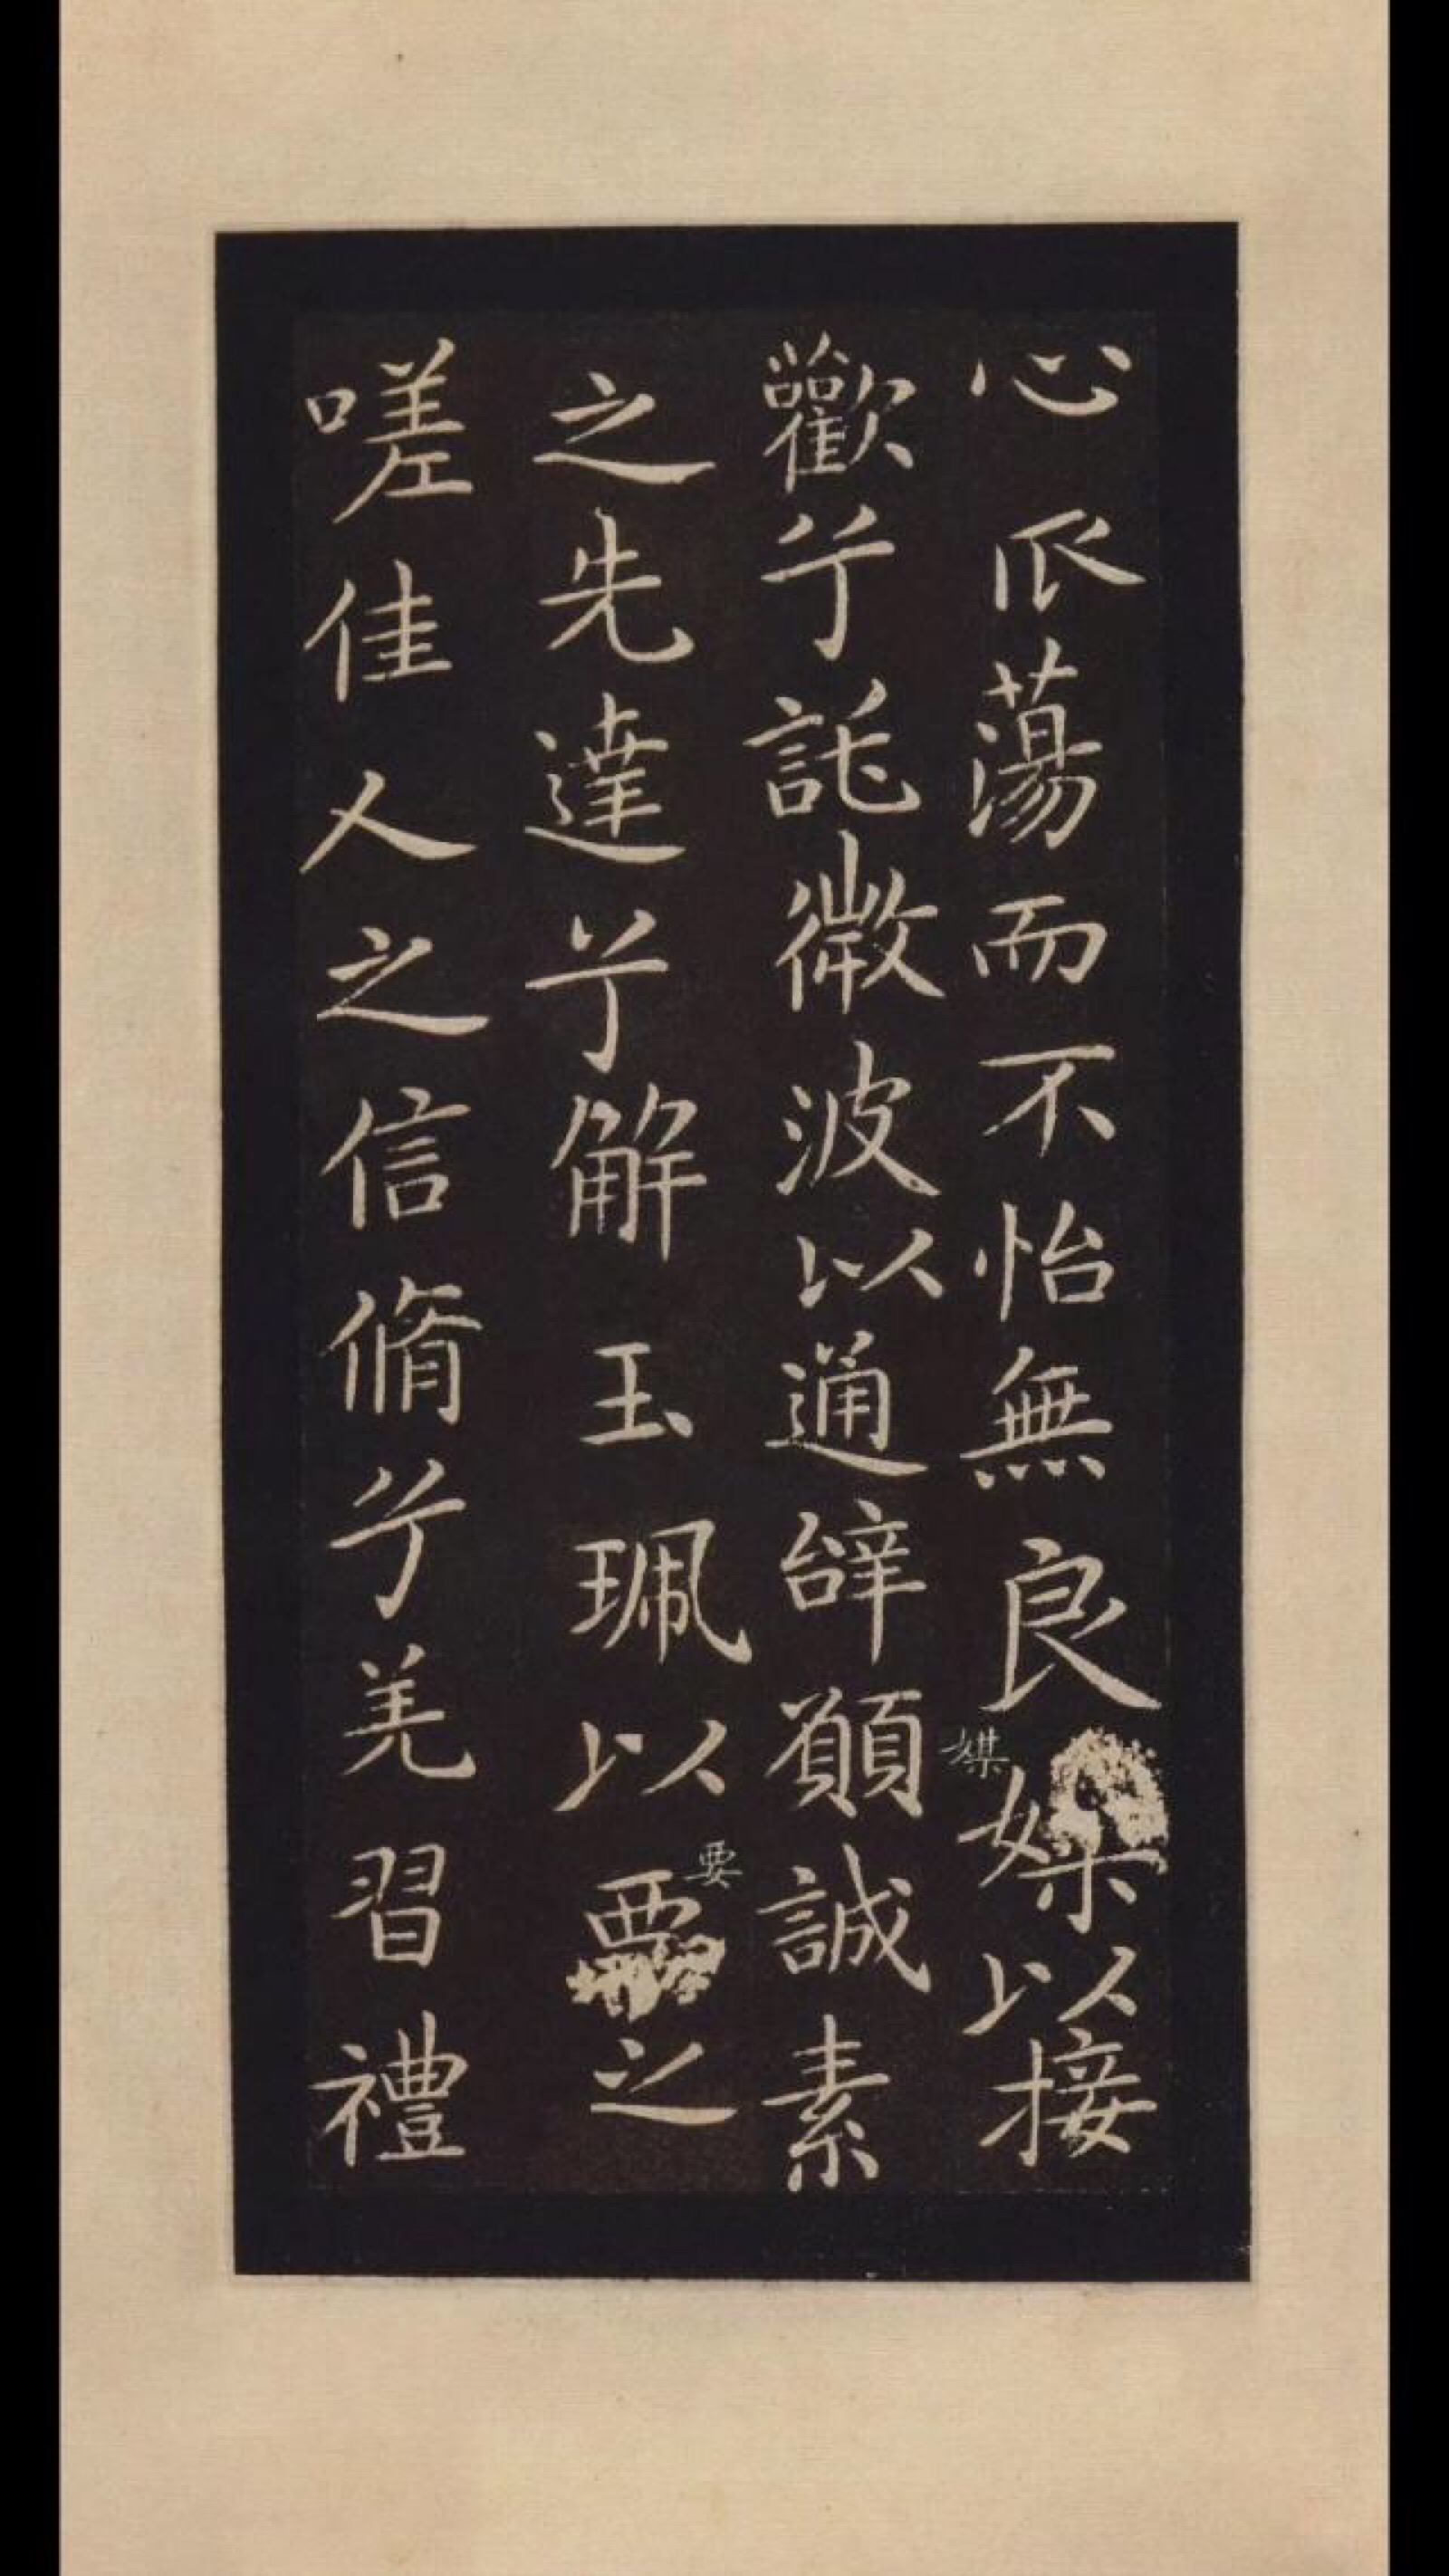 心㐲蕩而不怡無良媒以接
媒
歡兮託微波以通辝願誠素
之先達兮解玉珮以要之
要
嗟佳人之信脩兮羌習禮